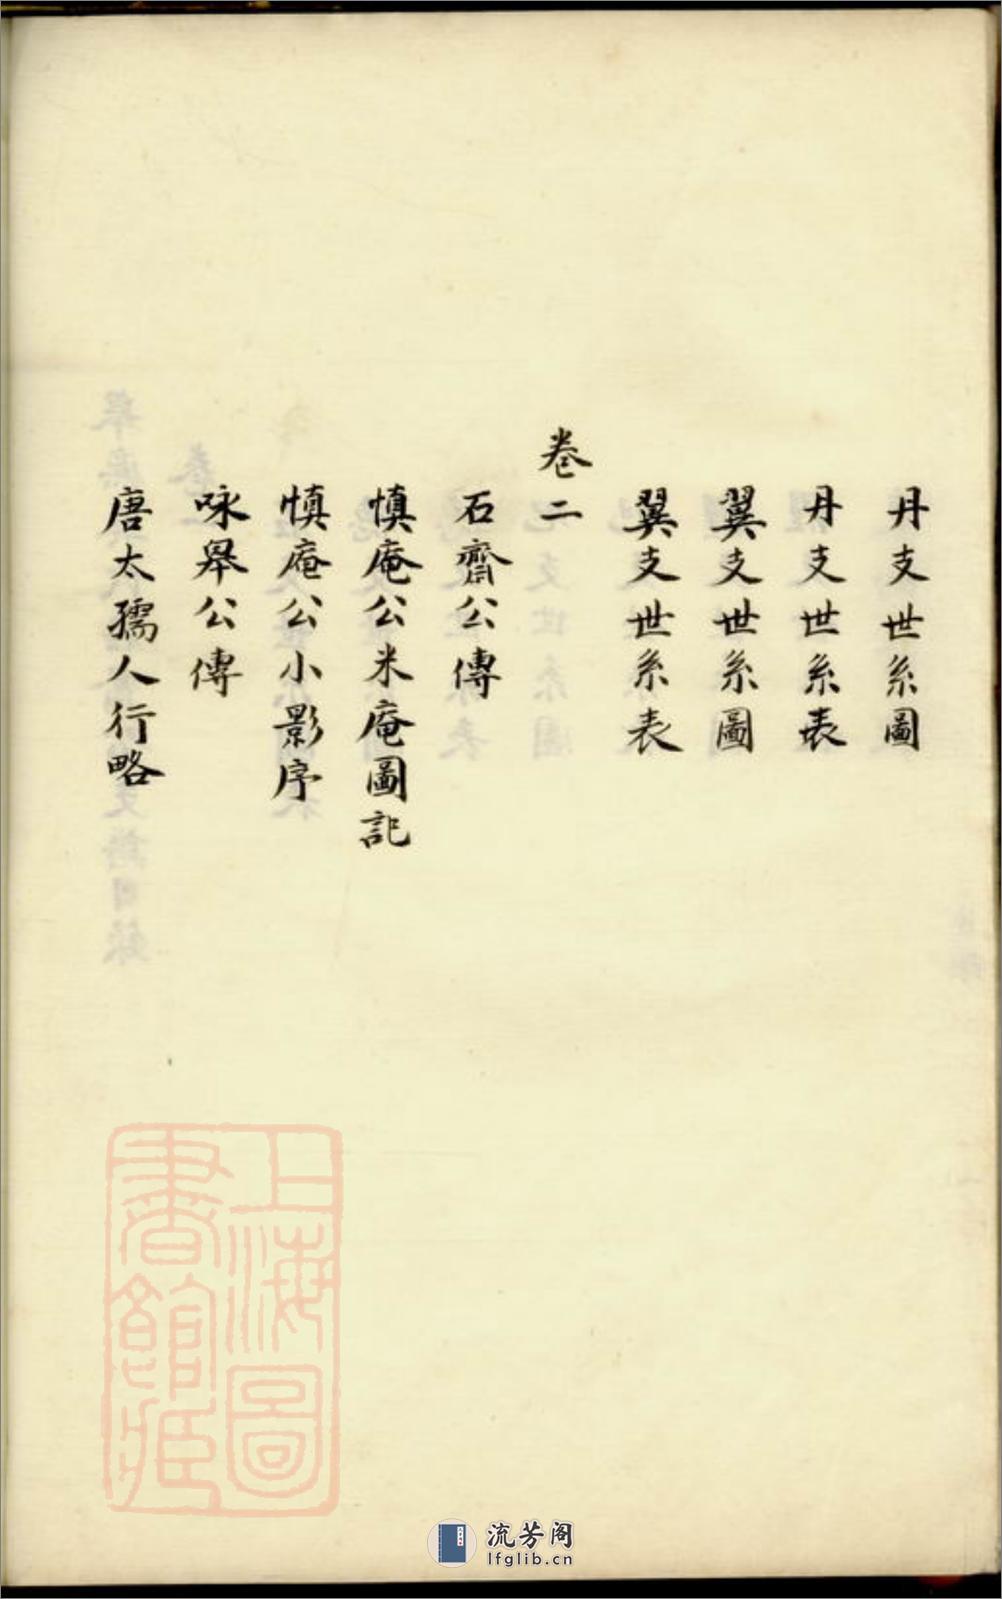 丹支世系圖
丹支世系表
翼支世系圖
翼支世系表
卷二
石齋公傳
慎庵公米庵圖記
慎庵公小影序
咏舉公傳
唐太孺人行略
上海圖
書館藏
流芳阁
lfglib.cn